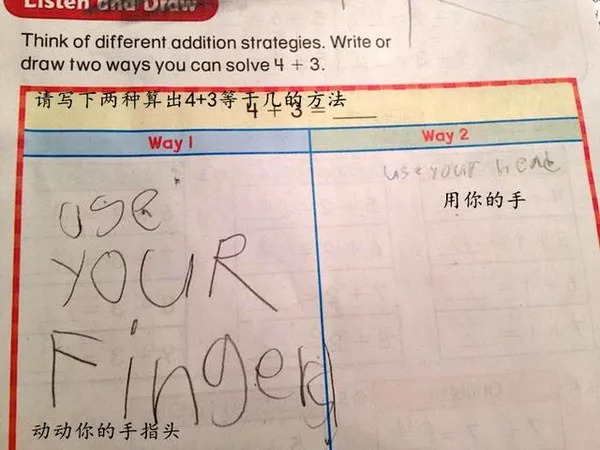 Listen and Draw
Think of different addition strategies. Write or
draw two ways you can solve 4 + 3.
请写下两种算出4+3等于几的方法
4 + 3 = ___
Way 1
Way 2
use
YOUR
Fingers
动动你的手指头
use your
用你的手